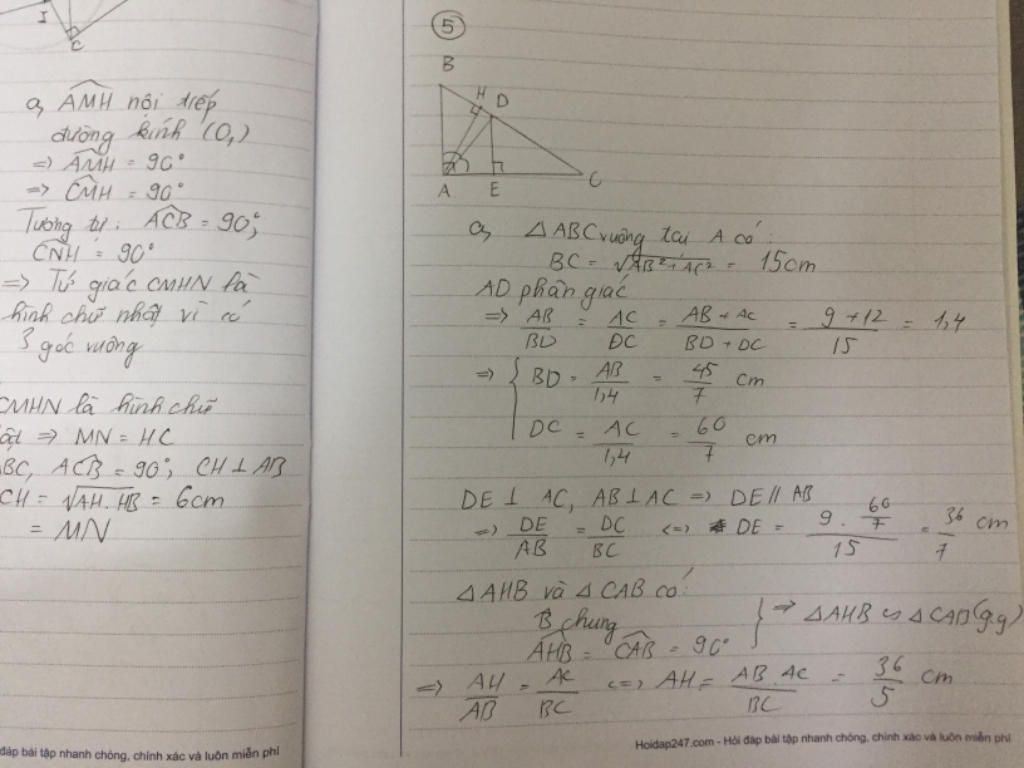 I
C
a, AMH nội tiếp
đường kính (O,)
=> AMH = 90°
=> CMH = 90°
Tương tự: ACB = 90°;
CNH = 90°
=> Tứ giác CMHN là
hình chữ nhật vì có
3 góc vuông
CMHN là hình chữ
ật => MN = HC
BC, ACB = 90°, CH ⊥ AB
CH = √AH.HB = 6cm
= MN
đáp bài tập nhanh chóng, chính xác và luôn miễn phí
5
B
H D
A E C
a, △ABC vuông tại A có:
BC = √AB² + AC² = 15cm
AD phân giác
=> AB/BD = AC/DC = AB + AC/BD + DC = 9 + 12/15 = 1,4
=> { BD = AB/1,4 = 45/7 cm
DC = AC/1,4 = 60/7 cm
DE ⊥ AC, AB ⊥ AC => DE // AB
=> DE/AB = DC/BC <=> DE = 9 . 60/7/15 = 36/7 cm
△AHB và △CAB có:
B chung
AHB = CAB = 90° } => △AHB ∽ △CAB (g.g)
=> AH/AB = AC/BC <=> AH = AB AC/BC = 36/5 cm
Hoidap247.com - Hỏi đáp bài tập nhanh chóng, chính xác và luôn miễn phí